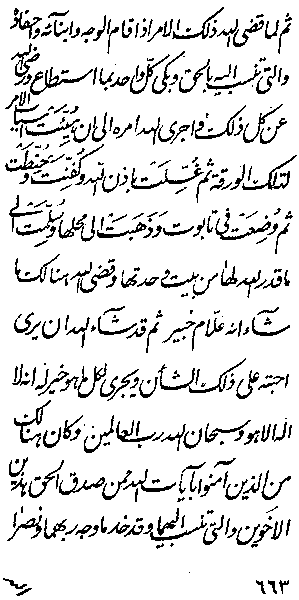 ثم لما قضى الله ذلك الامر اذا قام الوجه وابنائه واحفاده
والتي تنسب اليه بالحق وبكى كل واحد بما استطاع ورضى الله
عن كل ذلك واجرى الله امره الى ان هيئت اسباب الامر
لتلك الورقة ثم غسلت باذن الله وكفنت وحنطت
ثم وضعت في تابوت وذهبت الى محلها وسلمت الى
ما قدر الله لها من بيت وحدتها وقضى الله هنالك ما
شاء انه علام خبير ثم قد شاء الله ان يرى
احبته على ذلك الشأن ويجرى لكل ما هو خير له انه لا
اله الا هو وسبحان الله رب العالمين وكان هنالك
من الذين آمنوا بآيات الله من صدق الحق بهذين
الاخوين والتي تنسب اليهما وقد خدما وجه ربهما ونصرا
٦٦٣